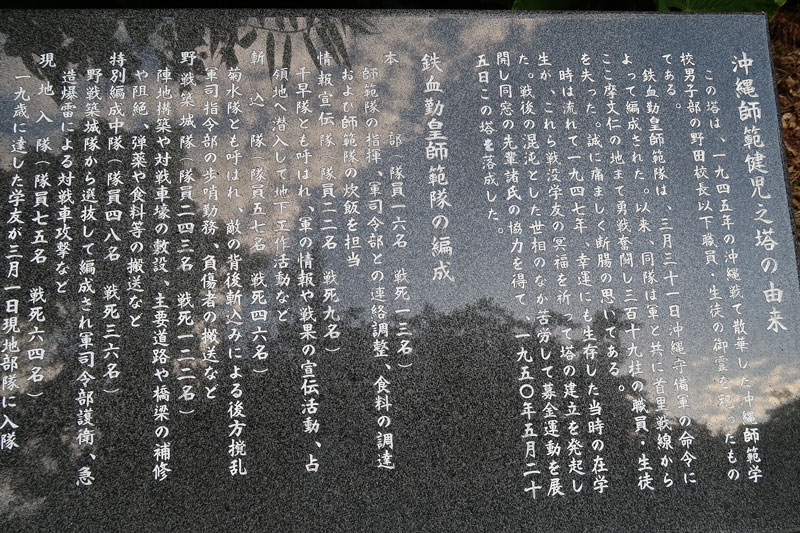 沖縄師範健児之塔の由来
この塔は、一九四五年の沖縄戦で散華した沖縄師範学
校男子部の野田校長以下職員・生徒の御霊を祀ったもの
である。
鉄血勤皇師範隊は、三月三十一日沖縄守備軍の命令に
よって編成された。以来、同隊は軍と共に首里戦線から
ここ摩文仁の地まで勇戦奮闘し三百十九柱の職員・生徒
を失った。誠に痛ましく断腸の思いである。
時は流れて一九四七年、幸運にも生存した当時の在学
生が、これら戦没学友の冥福を祈って塔の建立を発起し
た。戦後の混沌とした世相のなか苦労して募金運動を展
開し同窓の先輩諸氏の協力を得て、一九五〇年五月二十
五日この塔を落成した。
鉄血勤皇師範隊の編成
本部(隊員一六名 戦死一三名)
師範隊の指揮、軍司令部との連絡調整、食料の調達
および師範隊の炊飯を担当
情報宣伝隊(隊員二二名 戦死九名)
千早隊とも呼ばれ、軍の情報や戦果の宣伝活動、占
領地へ潜入して地下工作活動など
斬込隊(隊員五七名 戦死四六名)
菊水隊とも呼ばれ、敵の背後斬込みによる後方撹乱
軍司令部の歩哨勤務、負傷者の搬送など
野戦築城隊(隊員二四三名 戦死一二二名)
陣地構築や対戦車壕の敷設、主要道路や橋梁の補修
や阻絶、弾薬や食料等の搬送など
特別編成中隊(隊員四八名 戦死三六名)
野戦築城隊から選抜して編成され軍司令部護衛、急
造爆雷による対戦車攻撃など
現地入隊(隊員七五名 戦死六四名)
一九歳に達した学友が三月一日現地部隊に入隊